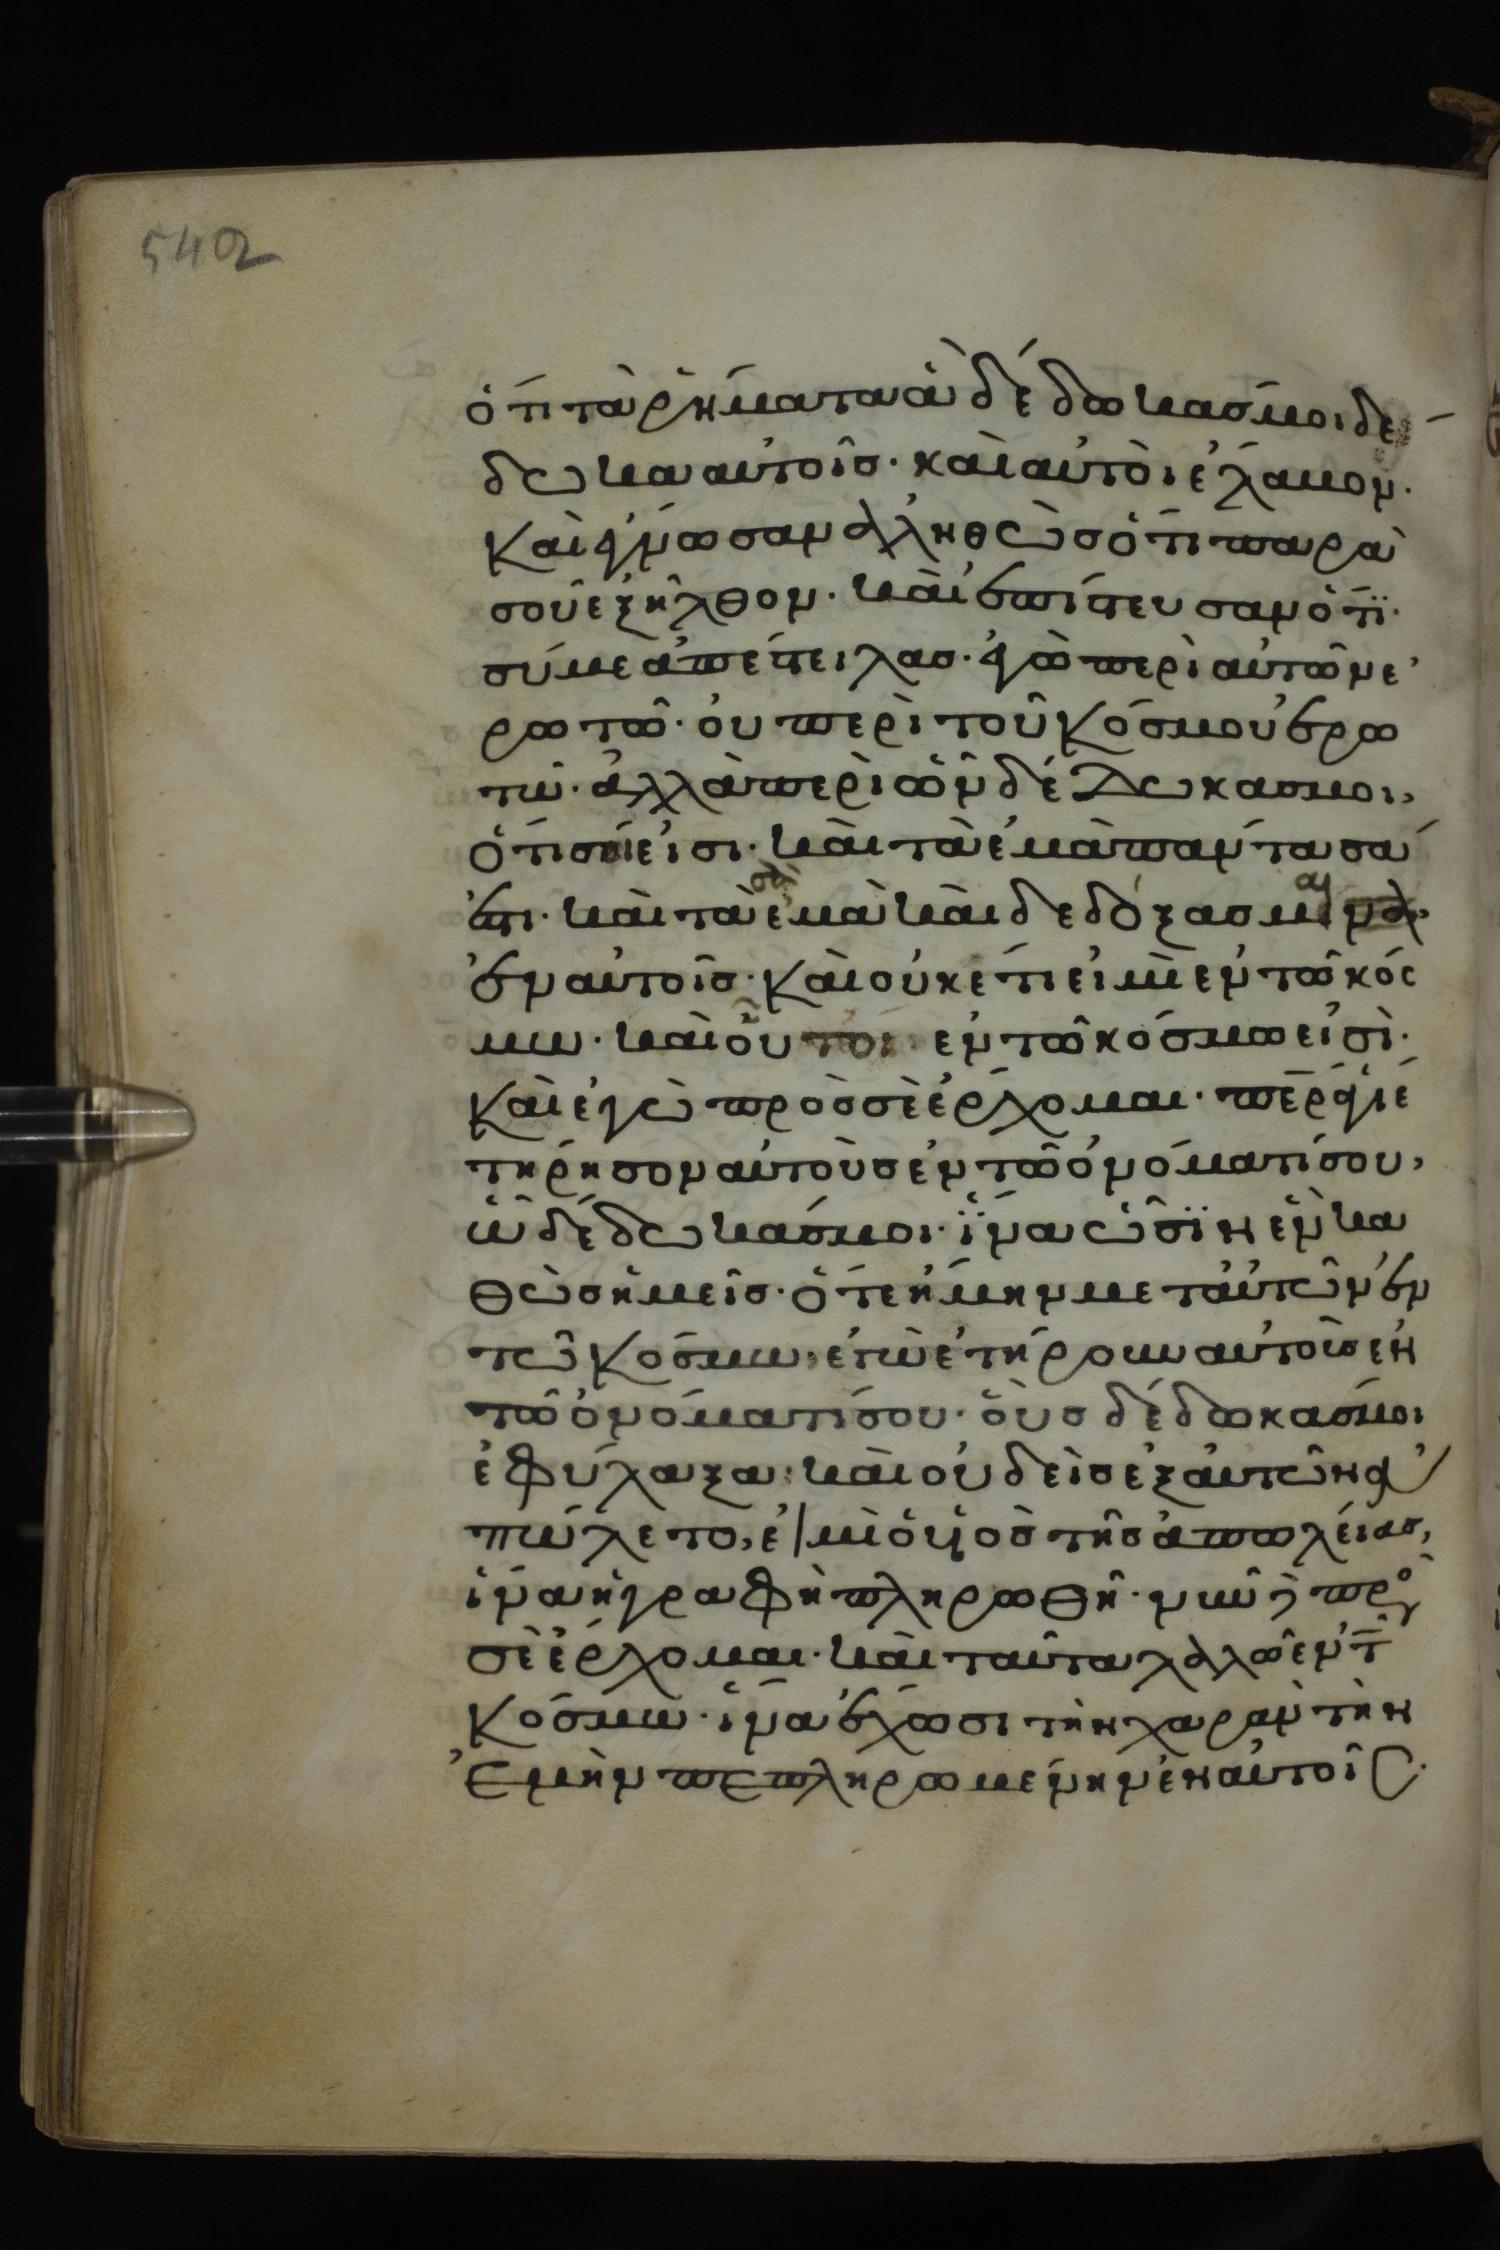 542
ὅτι τὰ ῥήματα ἃ δέδωκασ μοι δέ
δωκα αυτοῖσ· καὶ αὐτὸι ἐλαμον·
καὶ ἔγνωσαν ἀληθῶσ ὅτι παρὰ
σοῦ εξῆλθον· καὶ ἐπίστευσαν ὅτϊ·
σύ με ἀπέστειλασ· ἐγὼ περὶ αὐτῶν ε
ρωτῶ· ὀυ περὶ τοῦ κόσμου ἐρω
τῶ· ἀλλὰ περὶ ὧν δέδωκασ μοι,
ὅτι σοί εἰσι· καὶ τὰ ἐμὰ πάντα σά
ἐστι· καὶ τὰ σὰ ἐμὰ καὶ δεδόξασμαι
ἐν αυτοῖσ· καὶ οὐκέτι εἰμὶ εν τῶ κόσ
μω· καὶ οὗτοι εν τῶ κόσμω εἰσὶ·
καὶ εγὼ πρὸσ σὲ ἔρχομαι· περ ἅγιε
τήρησον αὐτοὺσ ἐν τῶ ὀνόματί σου,
ὧ δέδωκάσ μοι· ἵνα ὦσϊν ἓν κα
θὼσ ἡμεῖσ· ὅτε ἤμην μετ αὐτῶν ἐν
τῶ κόσμω· εγὼ ἐτήρουν αυτοὺσ ἐν
τῶ ὀνόματί σου· ὅυσ δέδωκάσ μοι
ἐφύλαξα· καὶ οὐδεὶσ ἐξ ἀυτῶν ἀ
πώλετο, εἰ μὶ ὁ υἱὸσ τῆσ ἀπωλείασ,
ἵνα ἡ γραφὴ πληρωθῆ· νῦν δὲ πρὸ
σὲ ἔρχομαι· καὶ ταῦτα λαλῶ ἐν τ
κόσμω· ἵνα ἔχωσι τὴν χαρὰν τὴν
ἐμὴν πεπληρωμένην ἐν αὐτοῖσ·